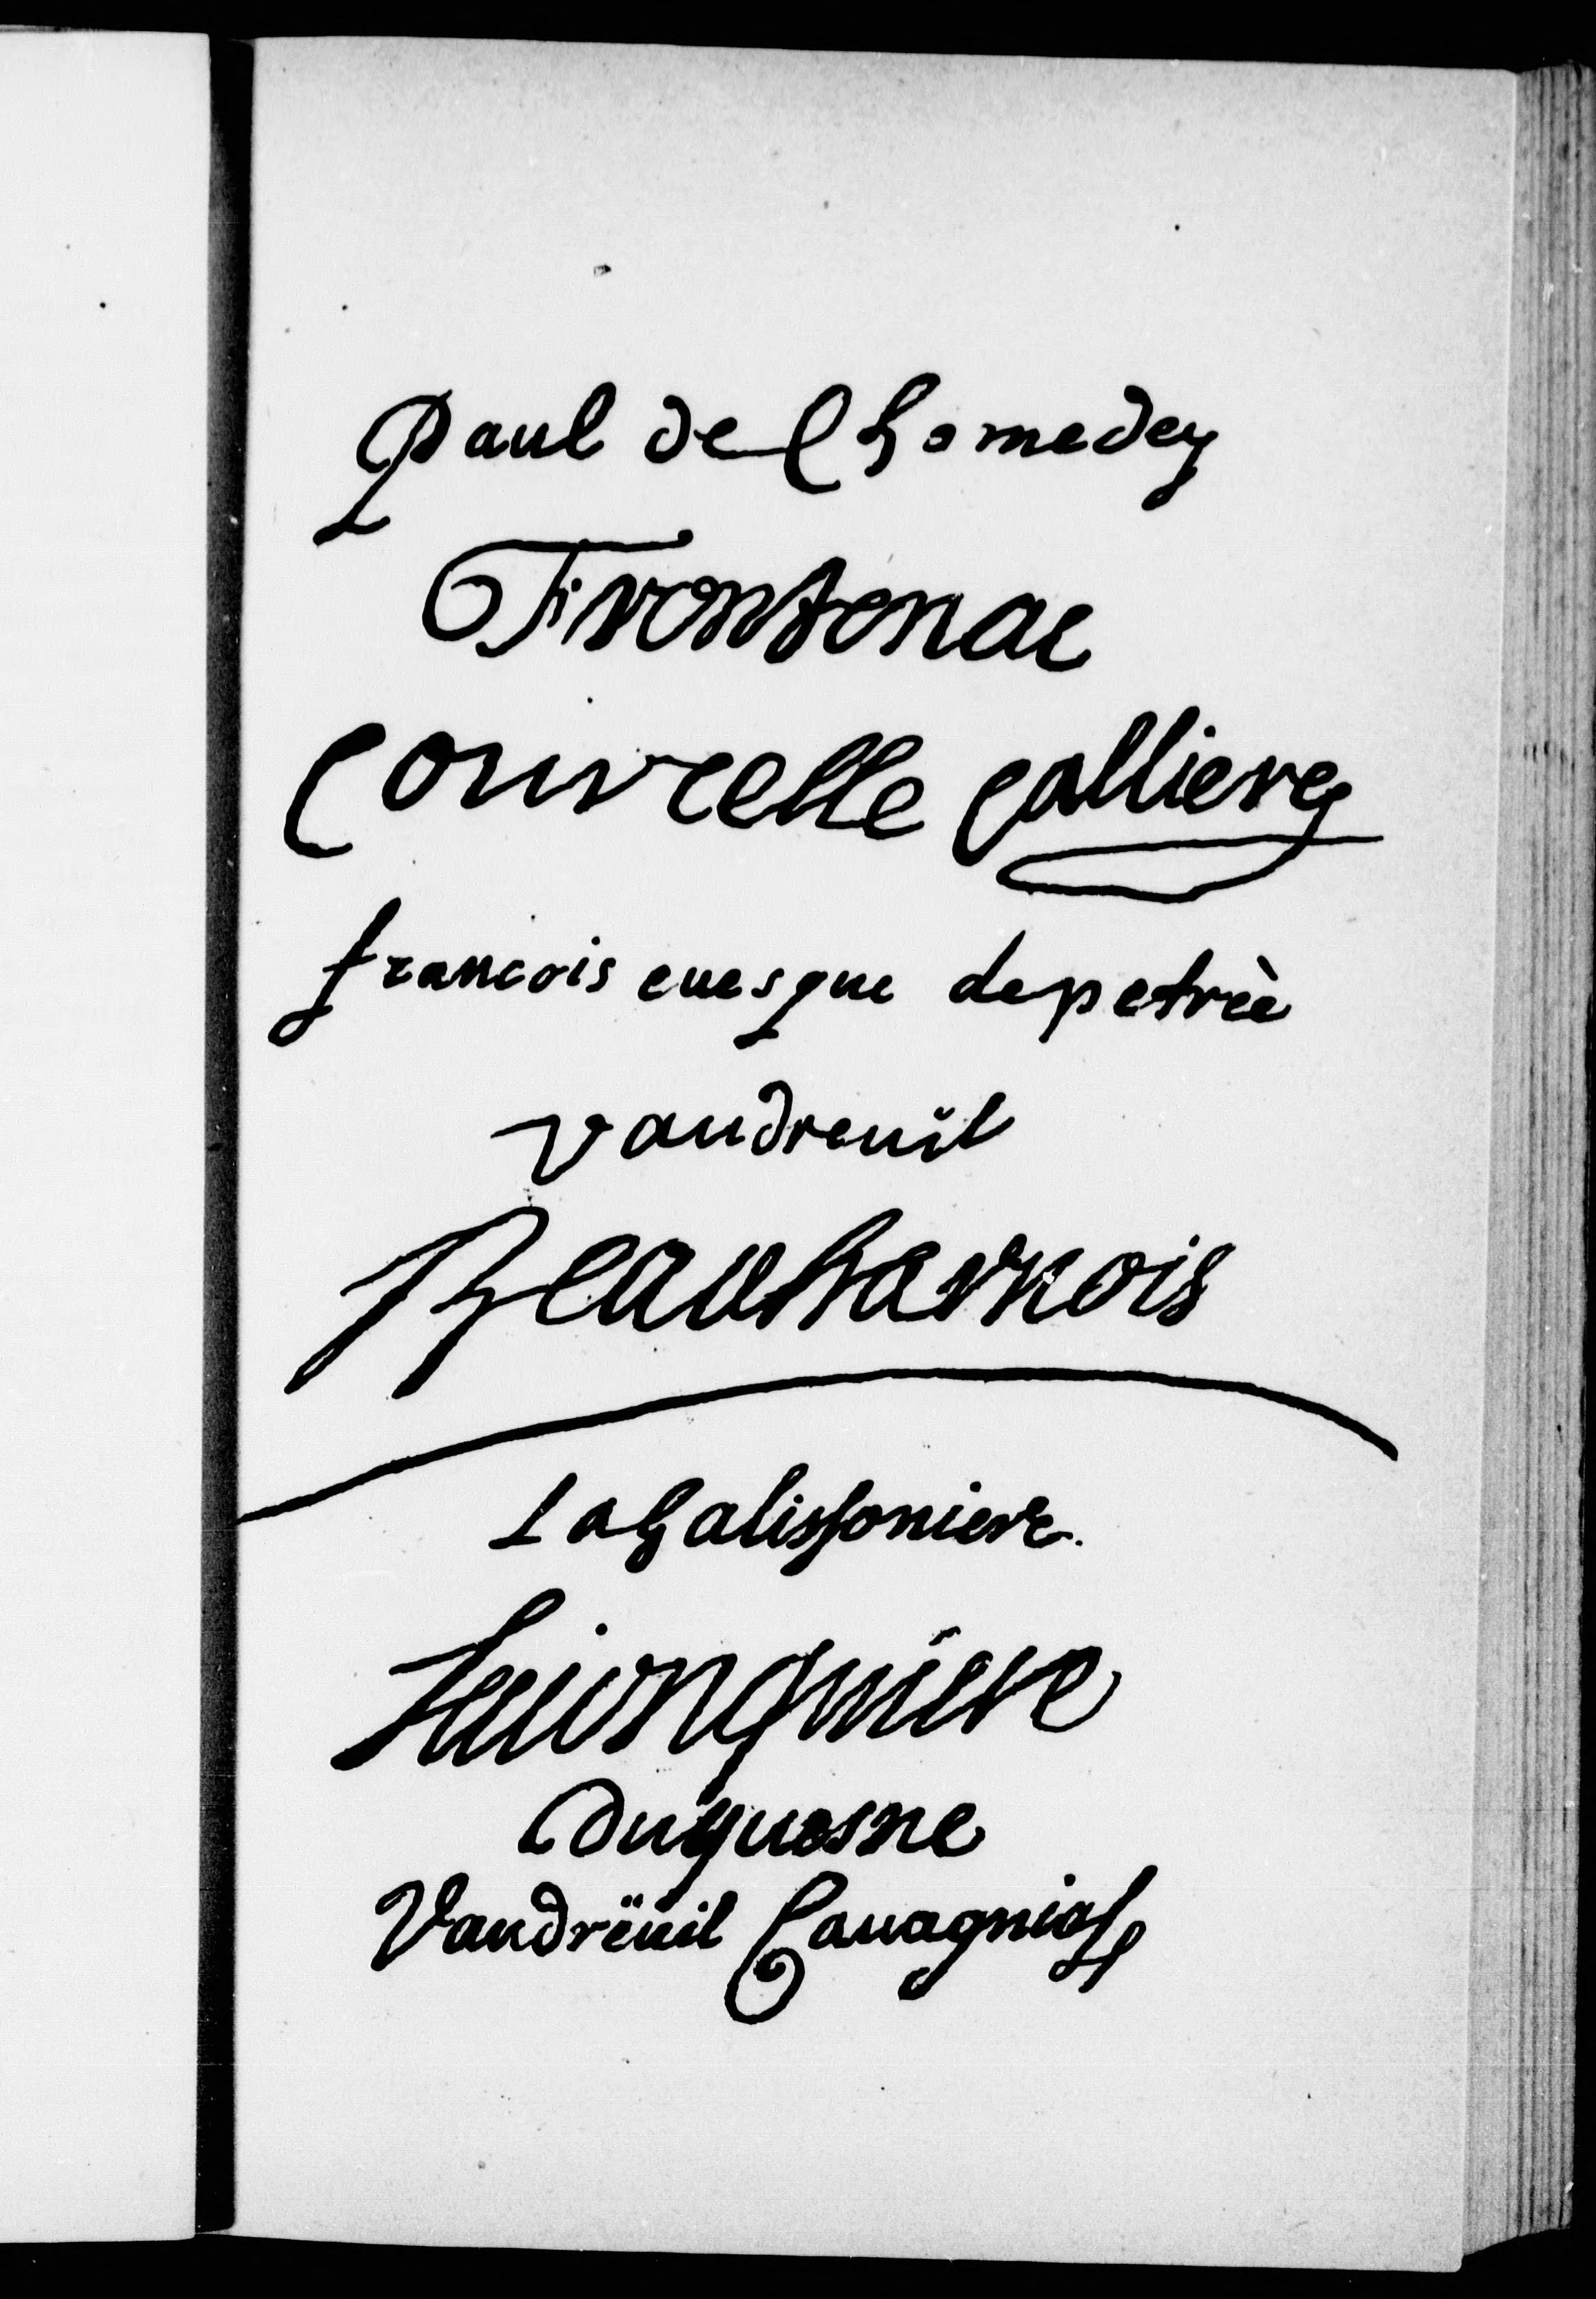 Paul de Chomedey
Frontenac
Courcelle Callieres
francois euesque de petrèe
Vaudreuil
Beauharnois
LaGalissoniere.
Lajonquiere
Duquesne
Vaudreüil Cauagnial